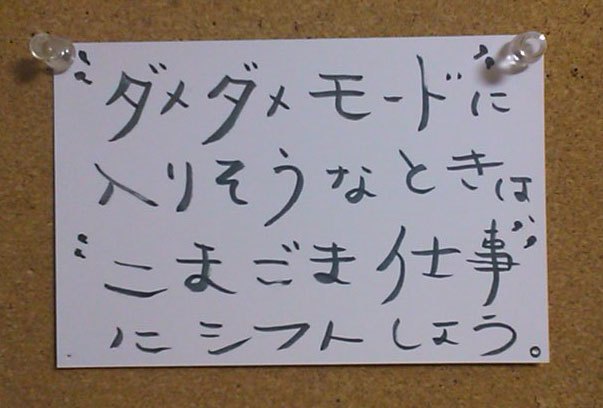 "ダメダメモード"に
入りそうなときは
"こまごま仕事"
にシフトしよう。